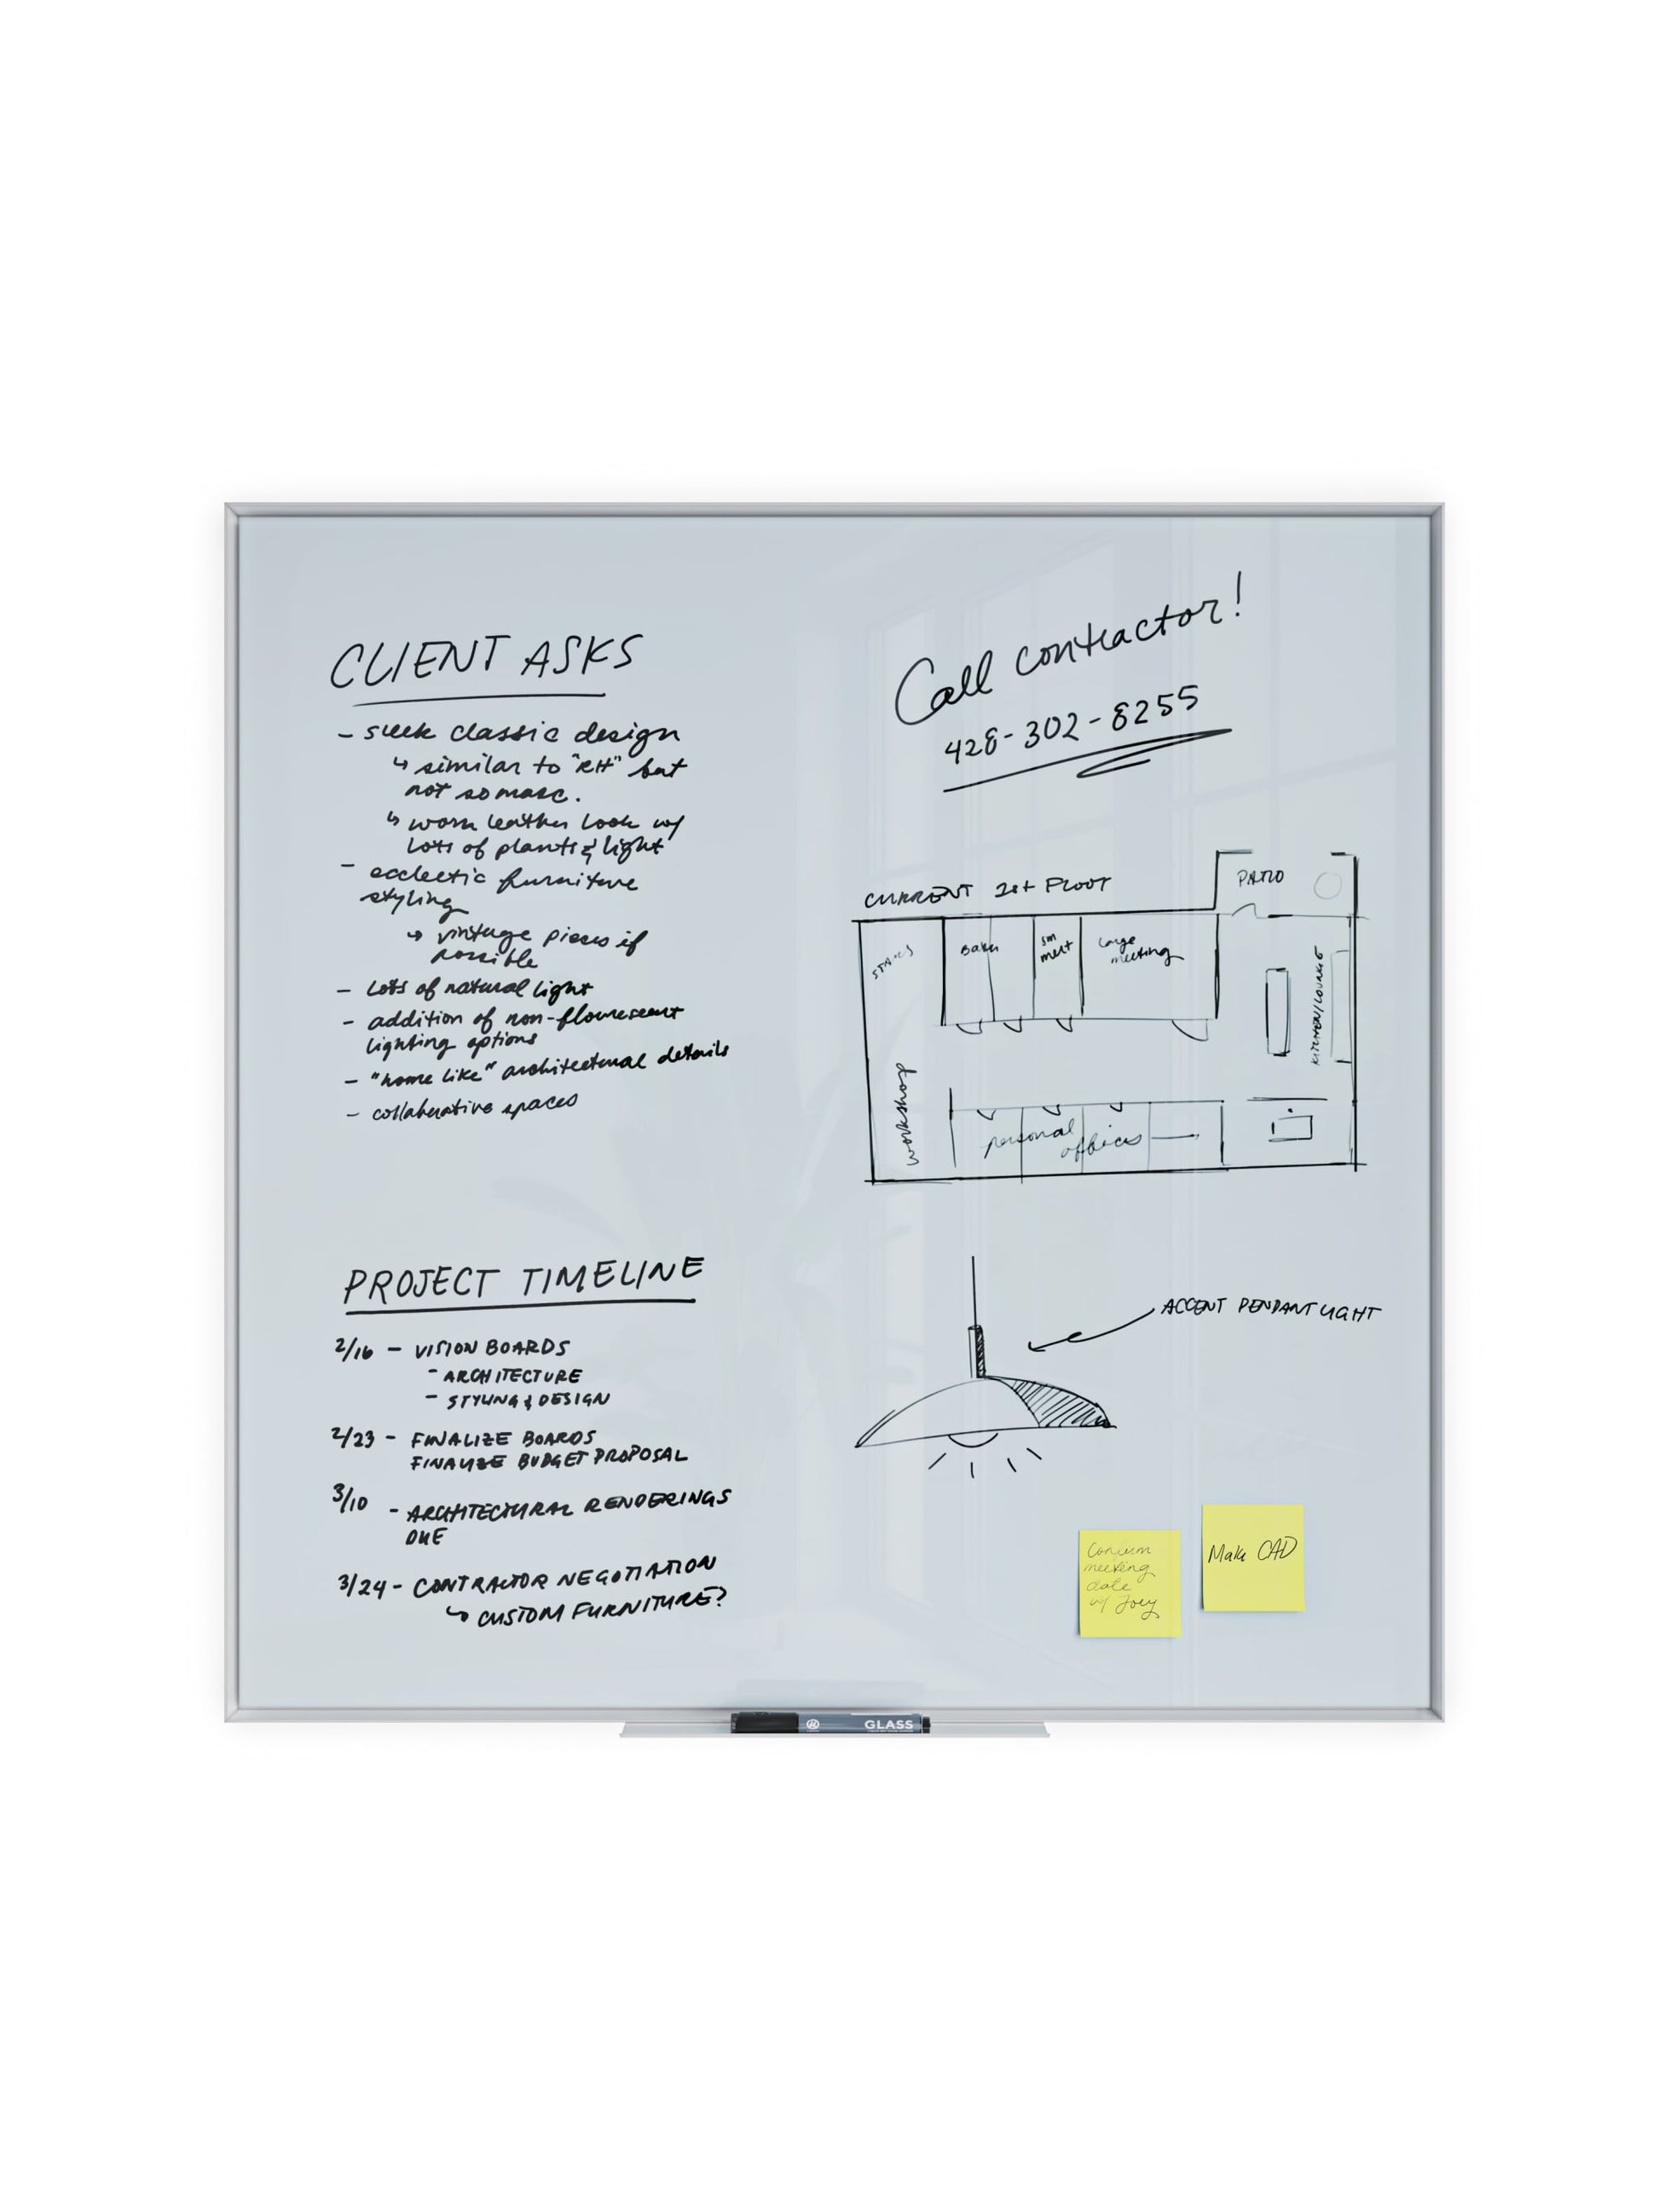 CLIENT ASKS
- sleek classic design
↳ similar to "RH" but
not so masc.
↳ worn leather look w/
lots of plants & light
- ecclectic furniture
styling
↳ vintage pieces if
possible
- lots of natural light
- addition of non-flourescent
lighting options
- "home like" architectural details
- collaborative spaces
PROJECT TIMELINE
2/16 - VISION BOARDS
- ARCHITECTURE
- STYLING & DESIGN
2/23 - FINALIZE BOARDS
FINALIZE BUDGET PROPOSAL
3/10 - ARCHITECTURAL RENDERINGS
DUE
3/24 - CONTRACTOR NEGOTIATION
↳ CUSTOM FURNITURE?
Call contractor!
428-302-8255
CURRENT FLOOR
PATIO
STAIRS
sm
meet
large
meeting
KITCHEN/LOUNGE
workshop
personal
offices
ACCENT PENDANT LIGHT
Confirm
meeting
date
w/ Joey
Make CAD
GLASS